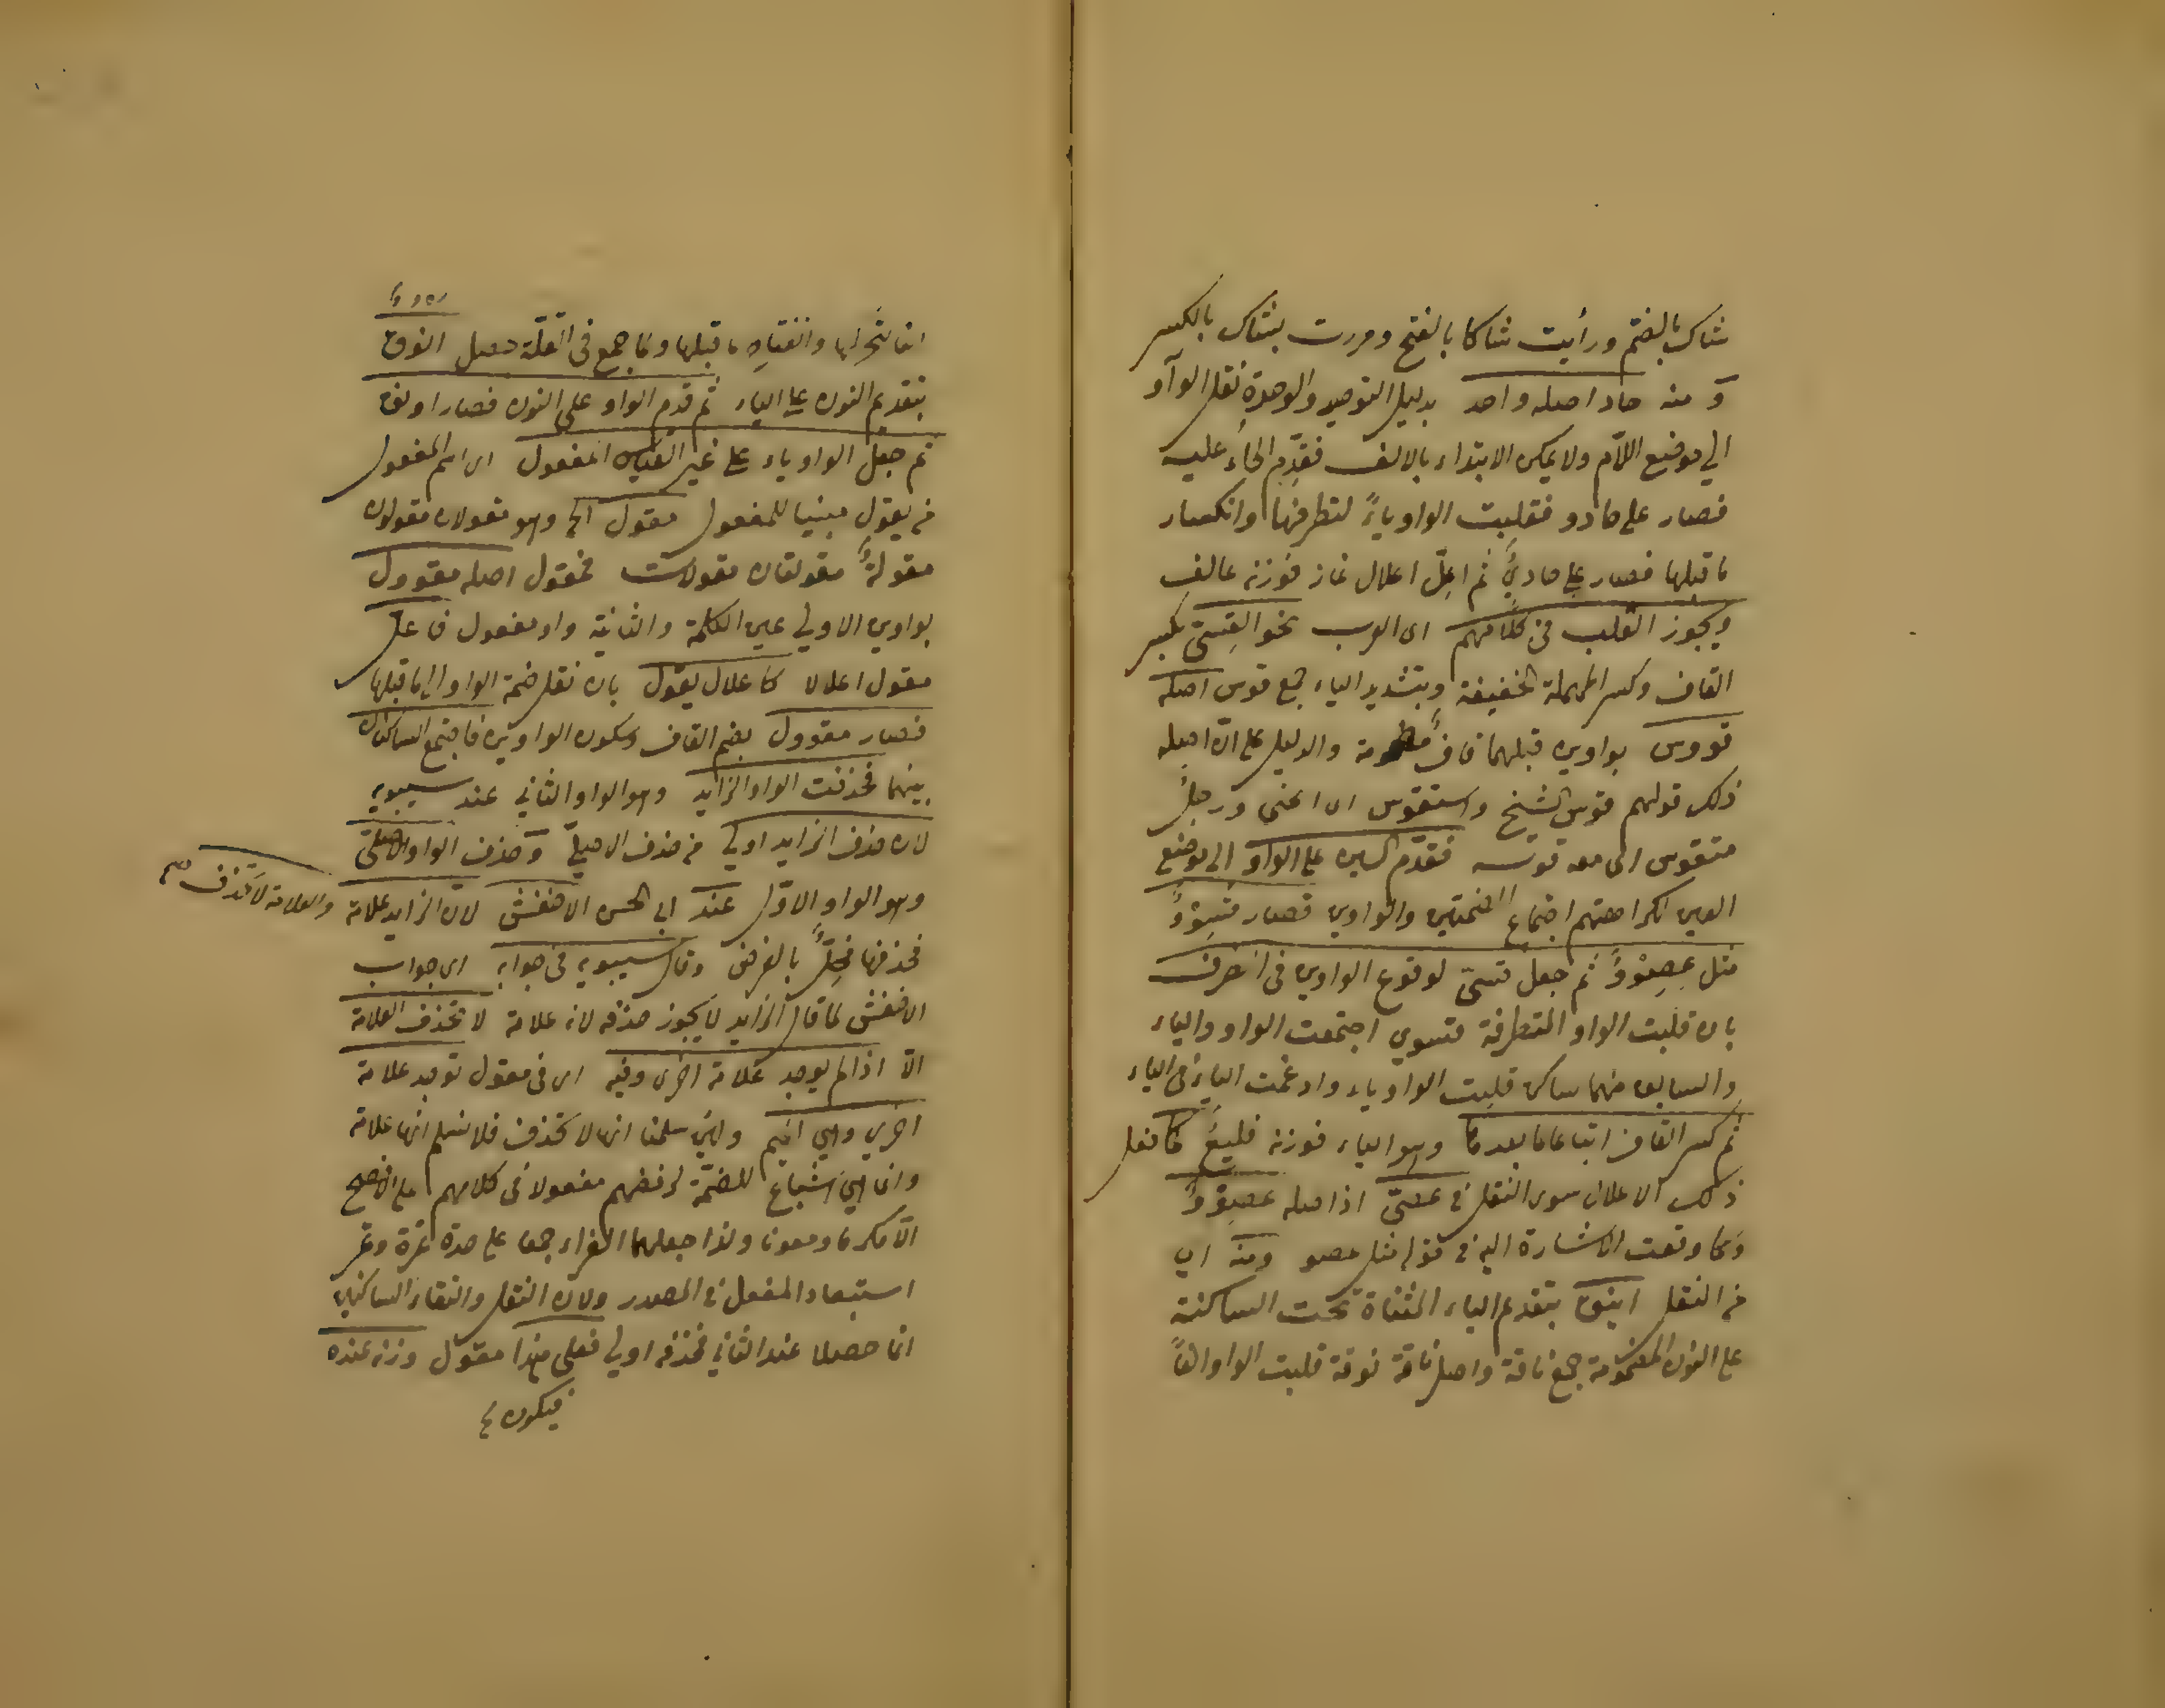 شاك بالضم ورأيت شاكا بالفتح ومررت بشاك بالكسر
و منه حاد اصله واحد بدليل التوحيد والوحدة نقل الواو
الي موضع اللام ولا يمكن الابتداء بالالف فقدّم الحاء عليه
فصار على حادو فقلبت الواو ياءً لتطرفها وانكسار
ما قبلها فصار على حاديٌ ثم اعلّ اعلال غاز فوزنه عالف
ويجوز القلب في كلامهم اى العرب نحو القِسيّ بكسر
القاف وكسر المهملة الخفيفة وبتشديد الياء جمع قوس اصله
قووس بواوين قبلهما قاف مضمومة والدليل على ان اصله
ذلك قولهم قوس الشيخ واستقوس اى انحنى ورجلٌ
متقوس اى معه قوسه فقدّم السين على الواو الى موضع
العين لكراهتهم اجتماع الضمتين والواوين فصار قسووٌ
مثل عصووٌ ثم جعل قسيّ لوقوع الواوين في الطرف
بان قلبت الواو المتطرفة قسوي اجتمعت الواو والياء
والسابق منهما ساكن قلبت الواو ياء وادغمت الياء في الياء
ثم كسر القاف اتباعا لما بعدها وهو الياء فوزنه فليعٌ كما فعل
ذلك الاعلال سوى النقل في عصيّ اذ اصله عصووٌ
وكما وقعت الاشارة اليه في قوله مثل عصو ومنه اي
من النقل اينق بتقديم الياء المثناة تحت الساكنة
على النون المضمومة جمع ناقة واصل ناقة نوقة قلبت الواو الفاً
لتحركها وانفتاح ما قبلها وكما جمع في القلّة حصل انوق
بتقديم النون على الياء ثم قدم الواو على النون فصار اونق
ثم جعل الواو ياء على غير القياس المفعول اى اسم المفعول
من يقول مبنيا للمفعول مقول الخ وهو مقولان مقولون
مقولةٌ مقولتان مقولات فمقول اصله مقوول
بواوين الاولي عين الكلمة والثانية واو مفعول فاعل
مقول اعلالا كاعلال يقول بان نقل ضمة الواو الى ما قبلها
فصار مقوول بضم القاف وسكون الواوين فاجتمع الساكنان
بينهما فحذفت الواو الزايد وهو الواو الثاني عند سيبويه
لان حذف الزايد اولي من حذف الاصليّ وحذف الواو الاصليّ
وهو الواو الاوّل عند ابي الحسن الاخفش لان الزايد علامة والعلامة لا تحذف
فحذفها مخلٌّ بالغرض وقال سيبويه في جوابه اى جواب
الاخفش لما قال الزايد لا يجوز حذفه لانه علامة لا تحذف العلامة
الاّ اذا لم يوجد علامة اخرى وفيه اى في مقول توجد علامة
اخري وهي الميم ولئن سلمنا انها لا تحذف فلا نسلم انها علامة
وانما هي اشباع للضمّة لرفضهم مفعولا في كلامهم على الافصح
الاّ مكرما ومعونا ولذا جعلهما الفراء جمعا على حدة تمرة وتمر
استبعاد المفعل في المصدر ولان الثقل والتقاء الساكنين
انما حصلا عند الثاني فحذفه اولي فعلى هذا مقول وزنه عنده
فيكون